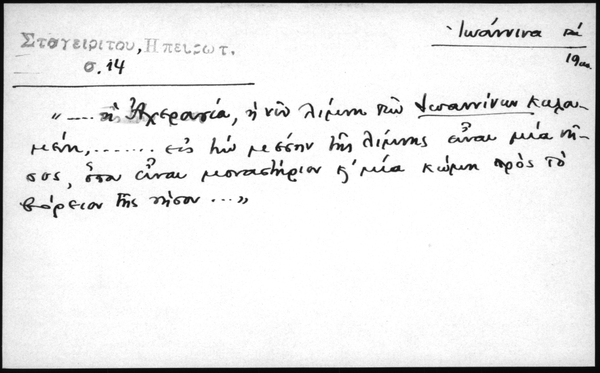 Σταγειρίτου, Ηπειρωτ.
σ. 14
Ἰωάννινα
19
".... ἡ Ἀχερασία, ἡ νῦν λίμνη τῶν Ἰωαννίνων καλου-
μένη, ....... εἰς τὴν μέσην τῆς λίμνης εἶναι μία νῆ-
σος, ὅπου εἶναι μοναστήριον κ' μία κώμη πρὸς τὸ
βόρειον τῆς νήσου ..."